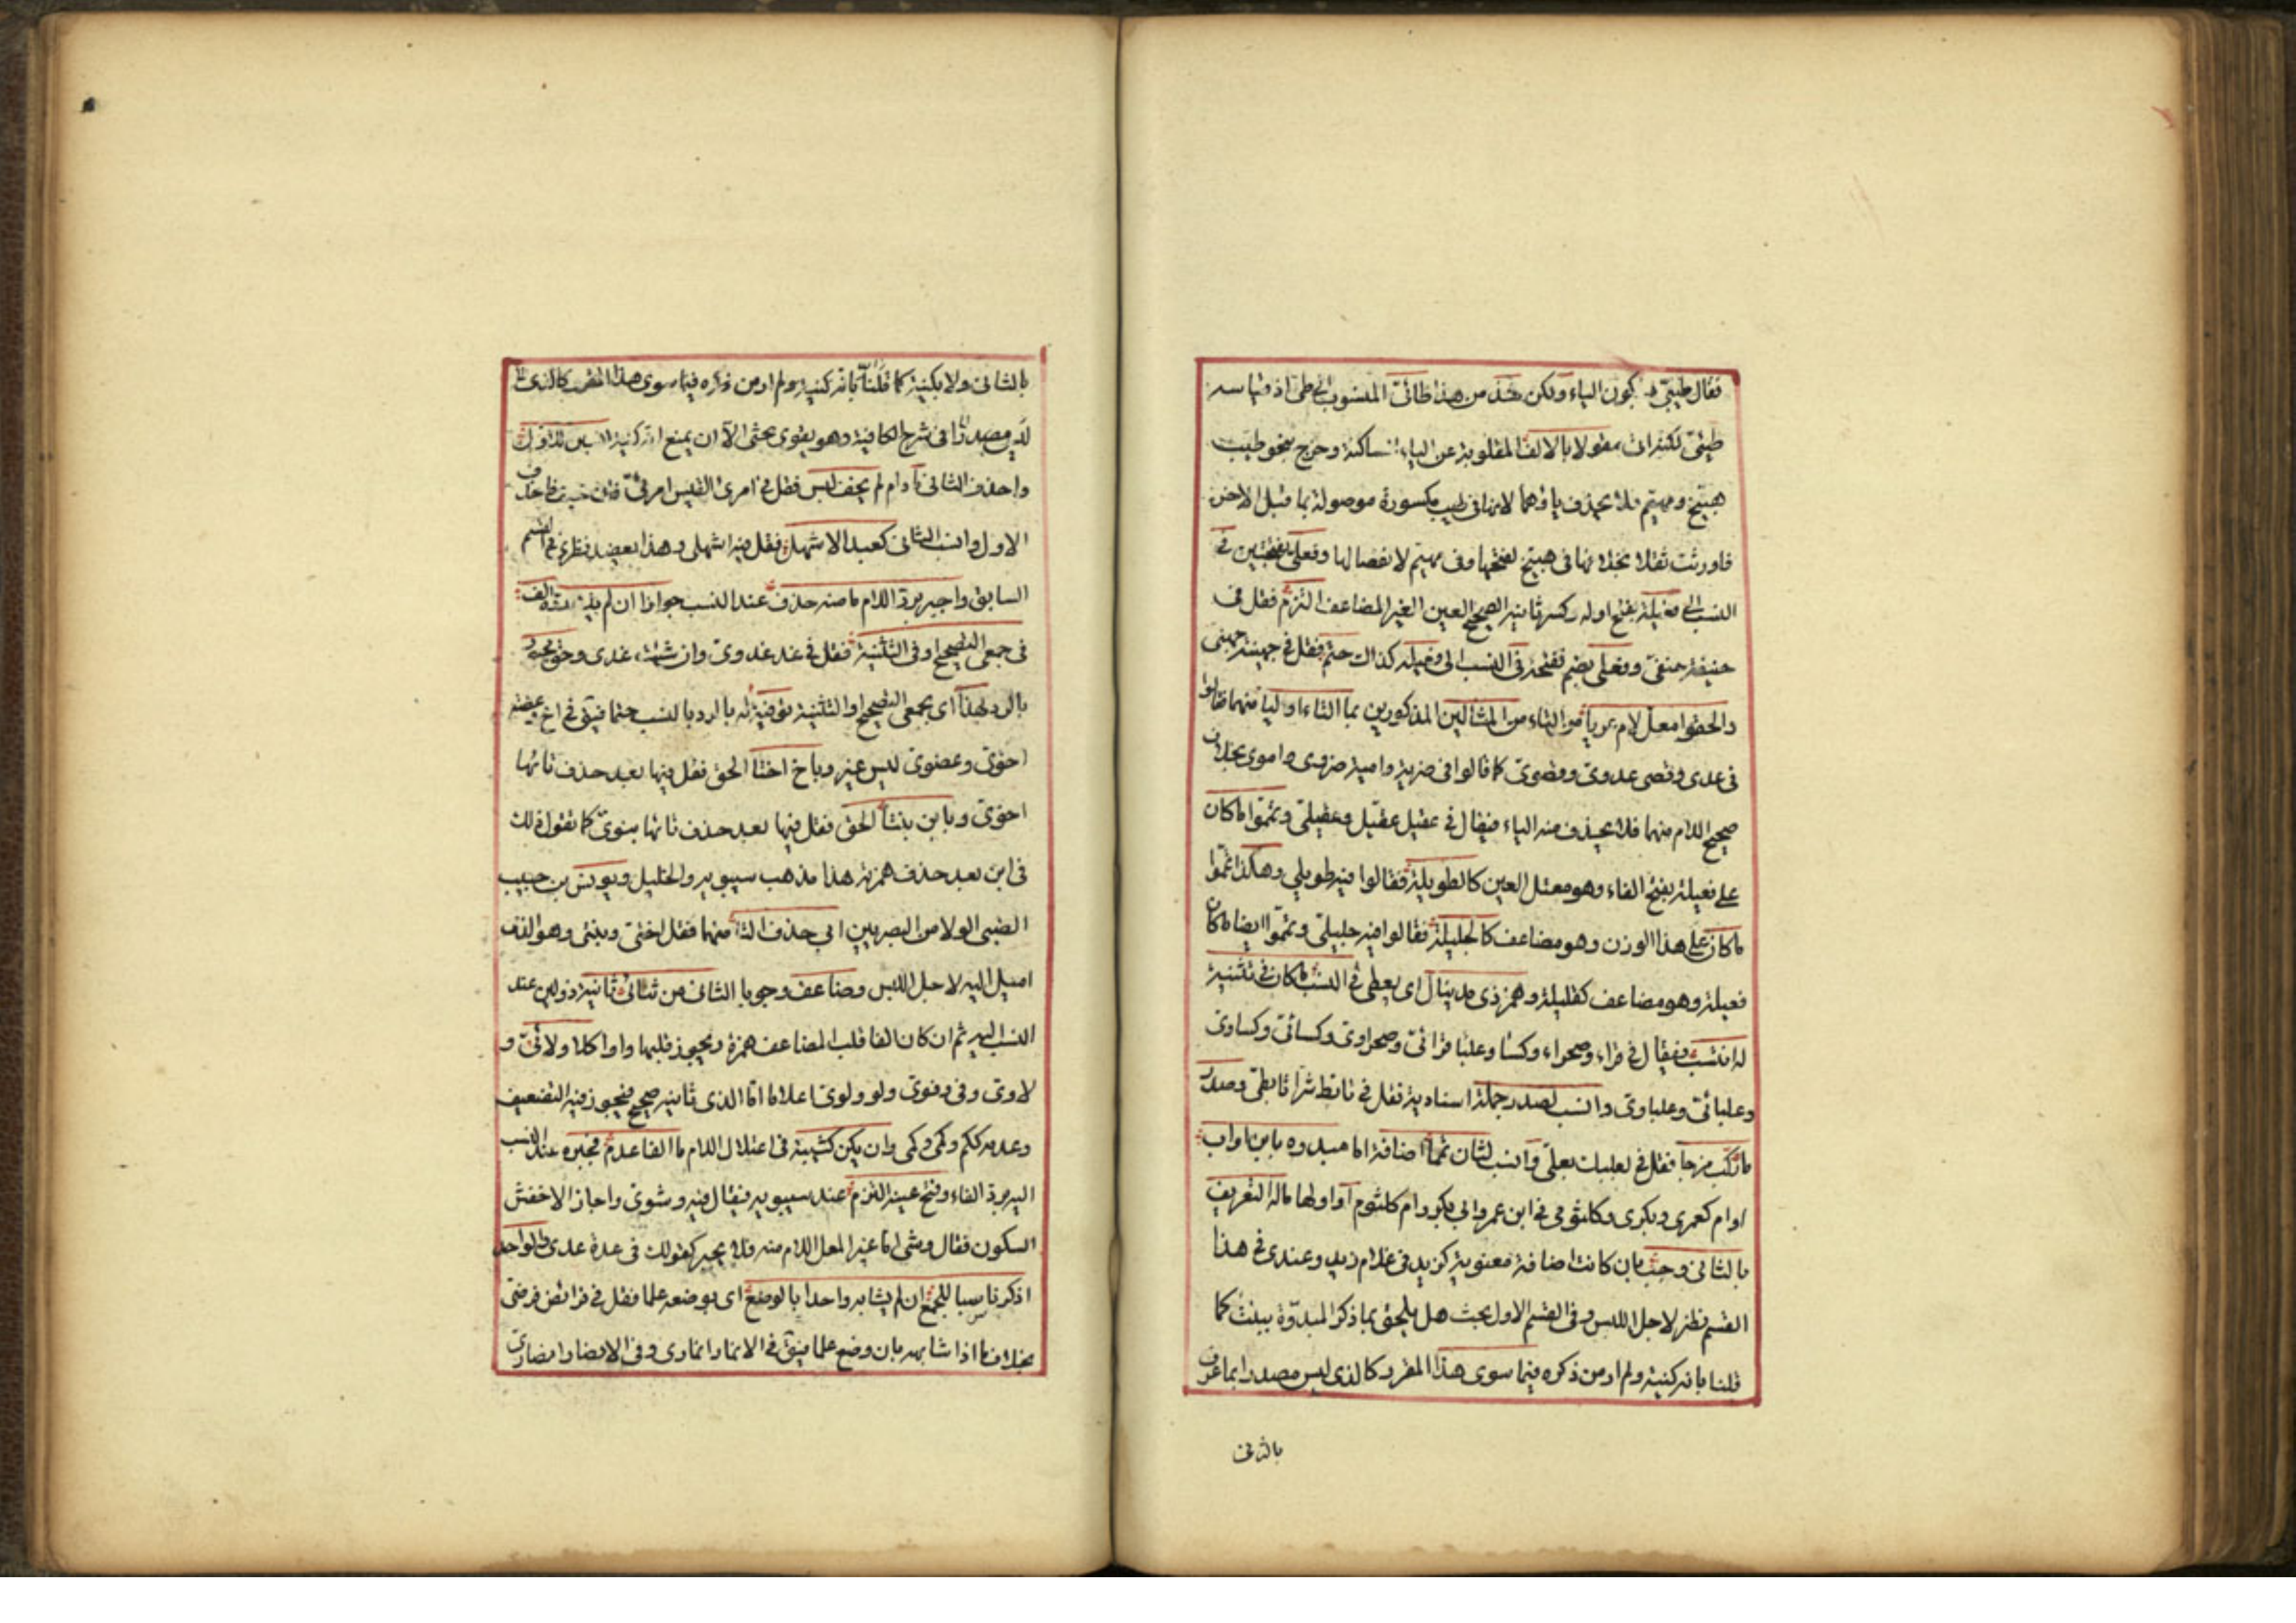 فقال طيبىّ بسكون الياء ولكن شذ من هذا طائىّ المنسوب الى طى اذ قياسه
طيئىّ لكنه اتى مقولا بالالف المقلوبة عن الياء الساكنة وخرج بنحو طيب
هبيّخ ومهيّم فلا يحذف ياؤهما لانها فى طيب مكسورة موصولة بما قبل الاخر
فاورثت ثقلا بخلافها فى هبيخ لفتحها وفى مهيم لانفصالها وفعلى بفتحتين فى
النسب الى فعيلة بفتح اوله وكسر ثانيه الصحيح العين الغير المضاعف التزم فقل فى
حنيفة حنفىّ وفعلى بضم ففتحة فى النسب الى فعيلة كذاك حتم فقل فى جهينة جهنى
والحقوا معل لام عريا من التاء من المثالين المذكورين بما التاء اوليا منهما فقالوا
فى عدى وقصى عدوىّ وقصوىّ كما قالوا فى ضرية وامية ضروى واموى بخلاف
صحيح اللام منهما فلا يحذف منه الياء فيقال فى عقيل عقيل وعقيلىّ وتمّموا ما كان
على فعيلة بفتح الفاء وهو معتل العين كالطويلة فقالوا فيه طويلي وهكذا تمّموا
ما كان على هذا الوزن وهو مضاعف كالجليلة فقالوا فيه جليلىّ وتمّموا ايضا ما كان
فعيلة وهو مضاعف كقليلة وهمز ذى مد ينال اى يعطى فى النسب ما كان فى تثنية
له انتسب فيقال فى قراء وصحراء وكساء وعلبا قرائىّ وصحراوىّ وكسائىّ وكساوىّ
وعلبائىّ وعلباوىّ وانسب لصدر جملة اسنادية فقل فى تابط شرا تابطىّ وصدر
ما ركّب مزجا فقل فى بعلبك بعلىّ وانسب لثان تمّما اضافة اما مبدوه بابن اواب
اوام كعمرى وبكرى وكلثومى فى ابن عمرو ابى بكر وام كلثوم او اولها ماله التعريف
بالثانى وجب بان كانت اضافة معنوية كزيدى فى غلام زيد وعندى فى هذا
القسم نظر لاجل اللبس وفى القسم الاول بحث هل يلحق بما ذكر المبدوّة ببنت كما
قلنا بانه كنية ولم ار من ذكره فيما سوى هذا المفرد كالذى ليس مصدرا بما عرف
بالثانى
بالثانى ولا بكنية كما قلنا بانه كنية ولم ار من ذكره فيما سوى هذا المفرد كالذى
ليس مصدرا فى شرح الكافية وهو يقوى بحثى الا ان يمنع انه كنية انسبن للاول
واحذف الثانى ما دام لم يخف لبس فقل فى امرئ القيس امرئىّ فان خيف فاحذف
الاول وانسب للثانى كعبد الاشهل فقل فيه اشهلى وهذا يعضد نظرى فى القسم
السابق واجبر برد اللام ما منه حذف عند النسب جوازا ان لم يك رده الف
فى جمعى التصحيح او فى التثنية فقل فى غد غدوىّ وان شئت غدى وحق مجبور
بالرد لهذا اى بجمعى التصحيح او التثنية توفية له بالرد بالنسب حتما فيقال فى اخ وعضه
اخوىّ وعضوىّ ليس غير وباخ اختا الحق فقل فيها بعد حذف تائها
اخوىّ وبابن بنتا الحق فقل فيها بعد حذف تائها بنوىّ كما تقول ذلك
فى ابن بعد حذف همزته هذا مذهب سيبويه والخليل ويونس بن حبيب
الضبى الولا من البصريين ابى حذف التا منهما فقل اختىّ وبنتى وهو الذى
اميل اليه لاجل اللبس وضاعف وجوبا الثانى من ثنائى ثانيه ذو لين عند
النسب اليه ثم ان كان الفا قلب المضاعف همزة ويجوز قلبها واوا كلا ولائىّ و
لاوى وفى وفيوى ولو ولوىّ اعلاما اما الذى ثانيه صحيح فيجوز فيه التضعيف
وعدمه ككم وكمّى وكمى وان يكن كشية فى اعتلال اللام ما الفا عدم فجبره عند النسب
اليه برد الفاء وفتح عينه التزم عند سيبويه فيقال فيه وشوىّ واجاز الاخفش
السكون فقال وشيى اما غير المعل اللام منه فلا يجبر كقولك فى عدة عدى والواحد
اذكر ناسبا للجمع ان لم يشابه واحدا بالوضع اى بوضعه علما فقل فى فرائض فرضىّ
بخلاف ما اذا شابهه بان وضع علما فيقال فى الانمار انمارى وفى الانصار انصارىّ